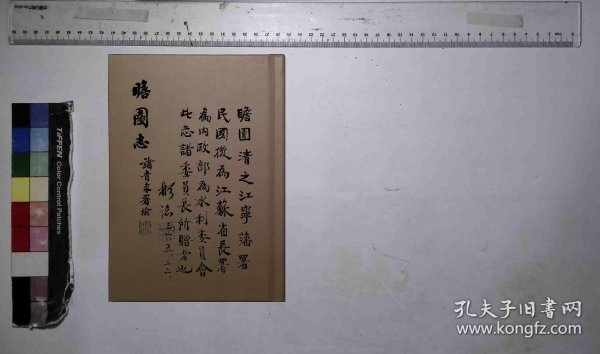 瞻園清之江寧藩署
民國後為江蘇省長署
為内政部為水利委員會
此志諸委員長所贈者也
瞻園志
諸青來署檢
TIFFEN Color Control Patches
孔夫子旧书网
www.kongfz.com